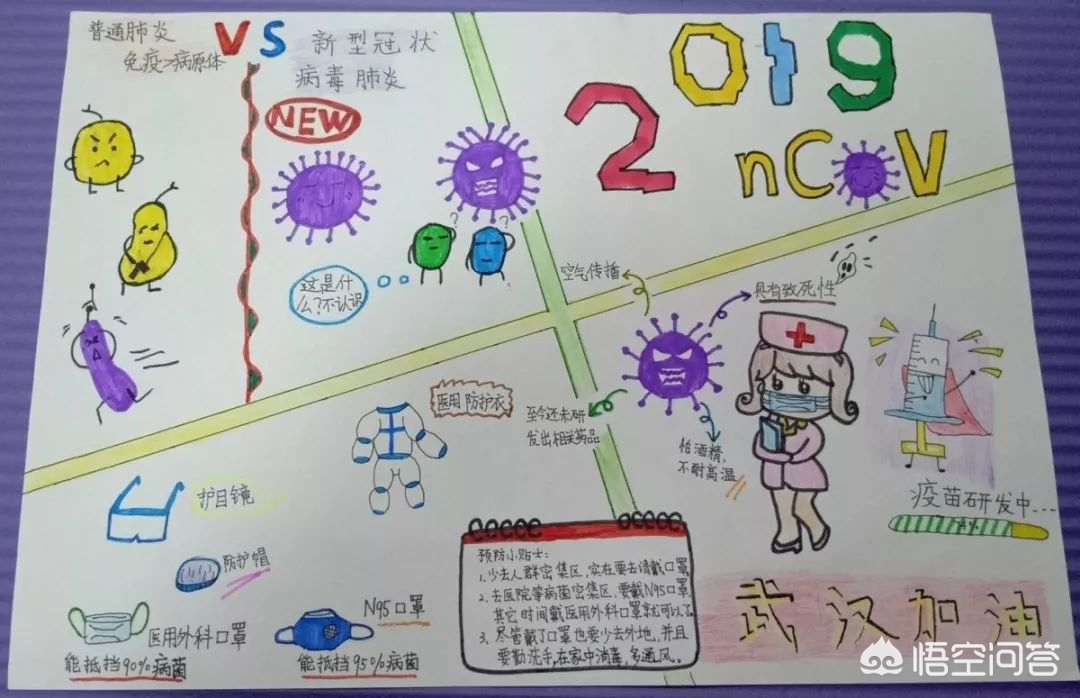 普通肺炎
免疫>病原体
VS
新型冠状
病毒肺炎
NEW
这是什
么?不认识
?
?
2019
nCoV
空气传播
具有致死性
至今还未研
发出相关药品
怕酒精,
不耐高温
疫苗研发中...
医用防护衣
护目镜
防护帽
医用外科口罩
能抵挡90%病菌
N95口罩
能抵挡95%病菌
预防小贴士:
1.少去人群密集区,实在要去请戴口罩
2.去医院等病菌密集区,要戴N95口罩,
其它时间戴医用外科口罩就可以了
3.尽管戴了口罩也要少去外地,并且
要勤洗手,在家中消毒,多通风。
武汉加油
悟空问答